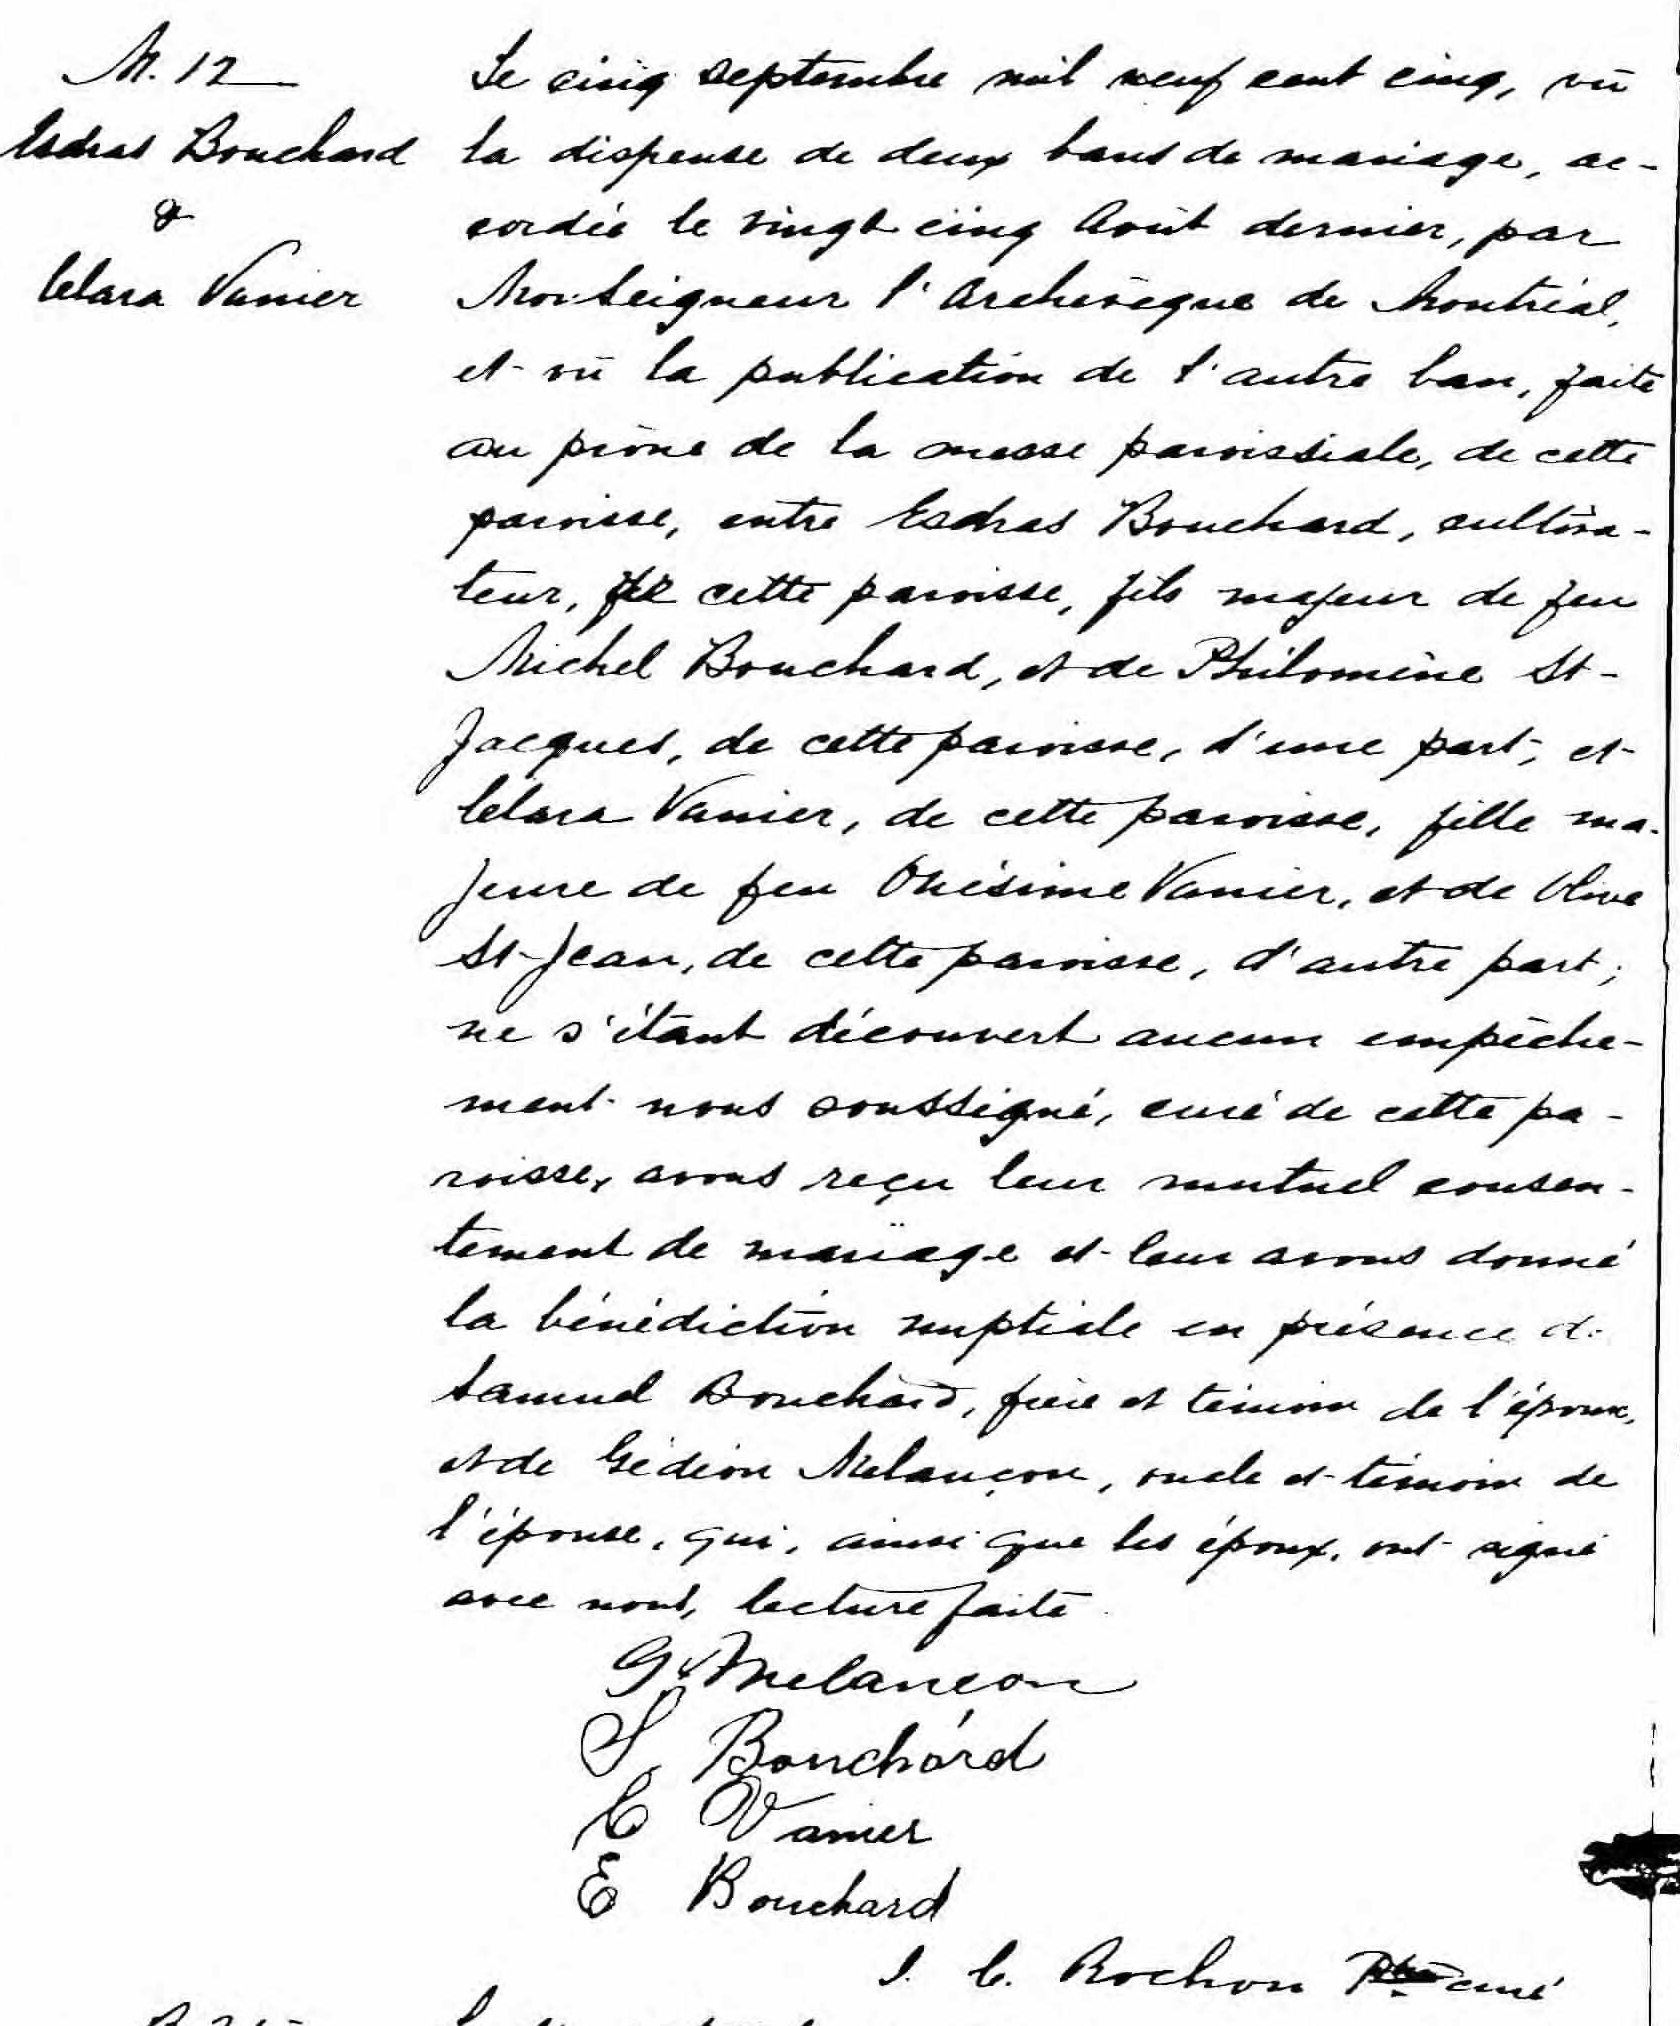 M. 12
Esdras Bouchard
&
Clara Vanier
Le cinq septembre mil neuf cent cinq, vû
la dispense de deux bans de mariage, ac-
cordée le vingt cinq Août dernier, par
Monseigneur l'Archevêque de Montréal,
et vû la publication de l'autre ban, faite
au prône de la messe paroissiale, de cette
paroisse, entre Esdras Bouchard, cultiva-
teur, de cette paroisse, fils majeur de feu
Michel Bouchard, et de Philomène St-
Jacques, de cette paroisse, d'une part, et
Clara Vanier, de cette paroisse, fille ma-
jeure de feu Onésime Vanier, et de Olive
St-Jean, de cette paroisse, d'autre part;
ne s'étant découvert aucun empêche-
ment nous soussigné, curé de cette pa-
roisse, avons reçu leur mutuel consen-
tement de mariage et leur avons donné
la bénédiction nuptiale en présence de
Samuel Bouchard, frère et témoin de l'époux,
et de Gédéon Melançon, oncle et témoin de
l'épouse, qui, ainsi que les époux, ont signé
avec nous, lecture faite.
G Melancon
S. Bouchard
C Vanier
E Bouchard
J. C. Rochon Ptre curé